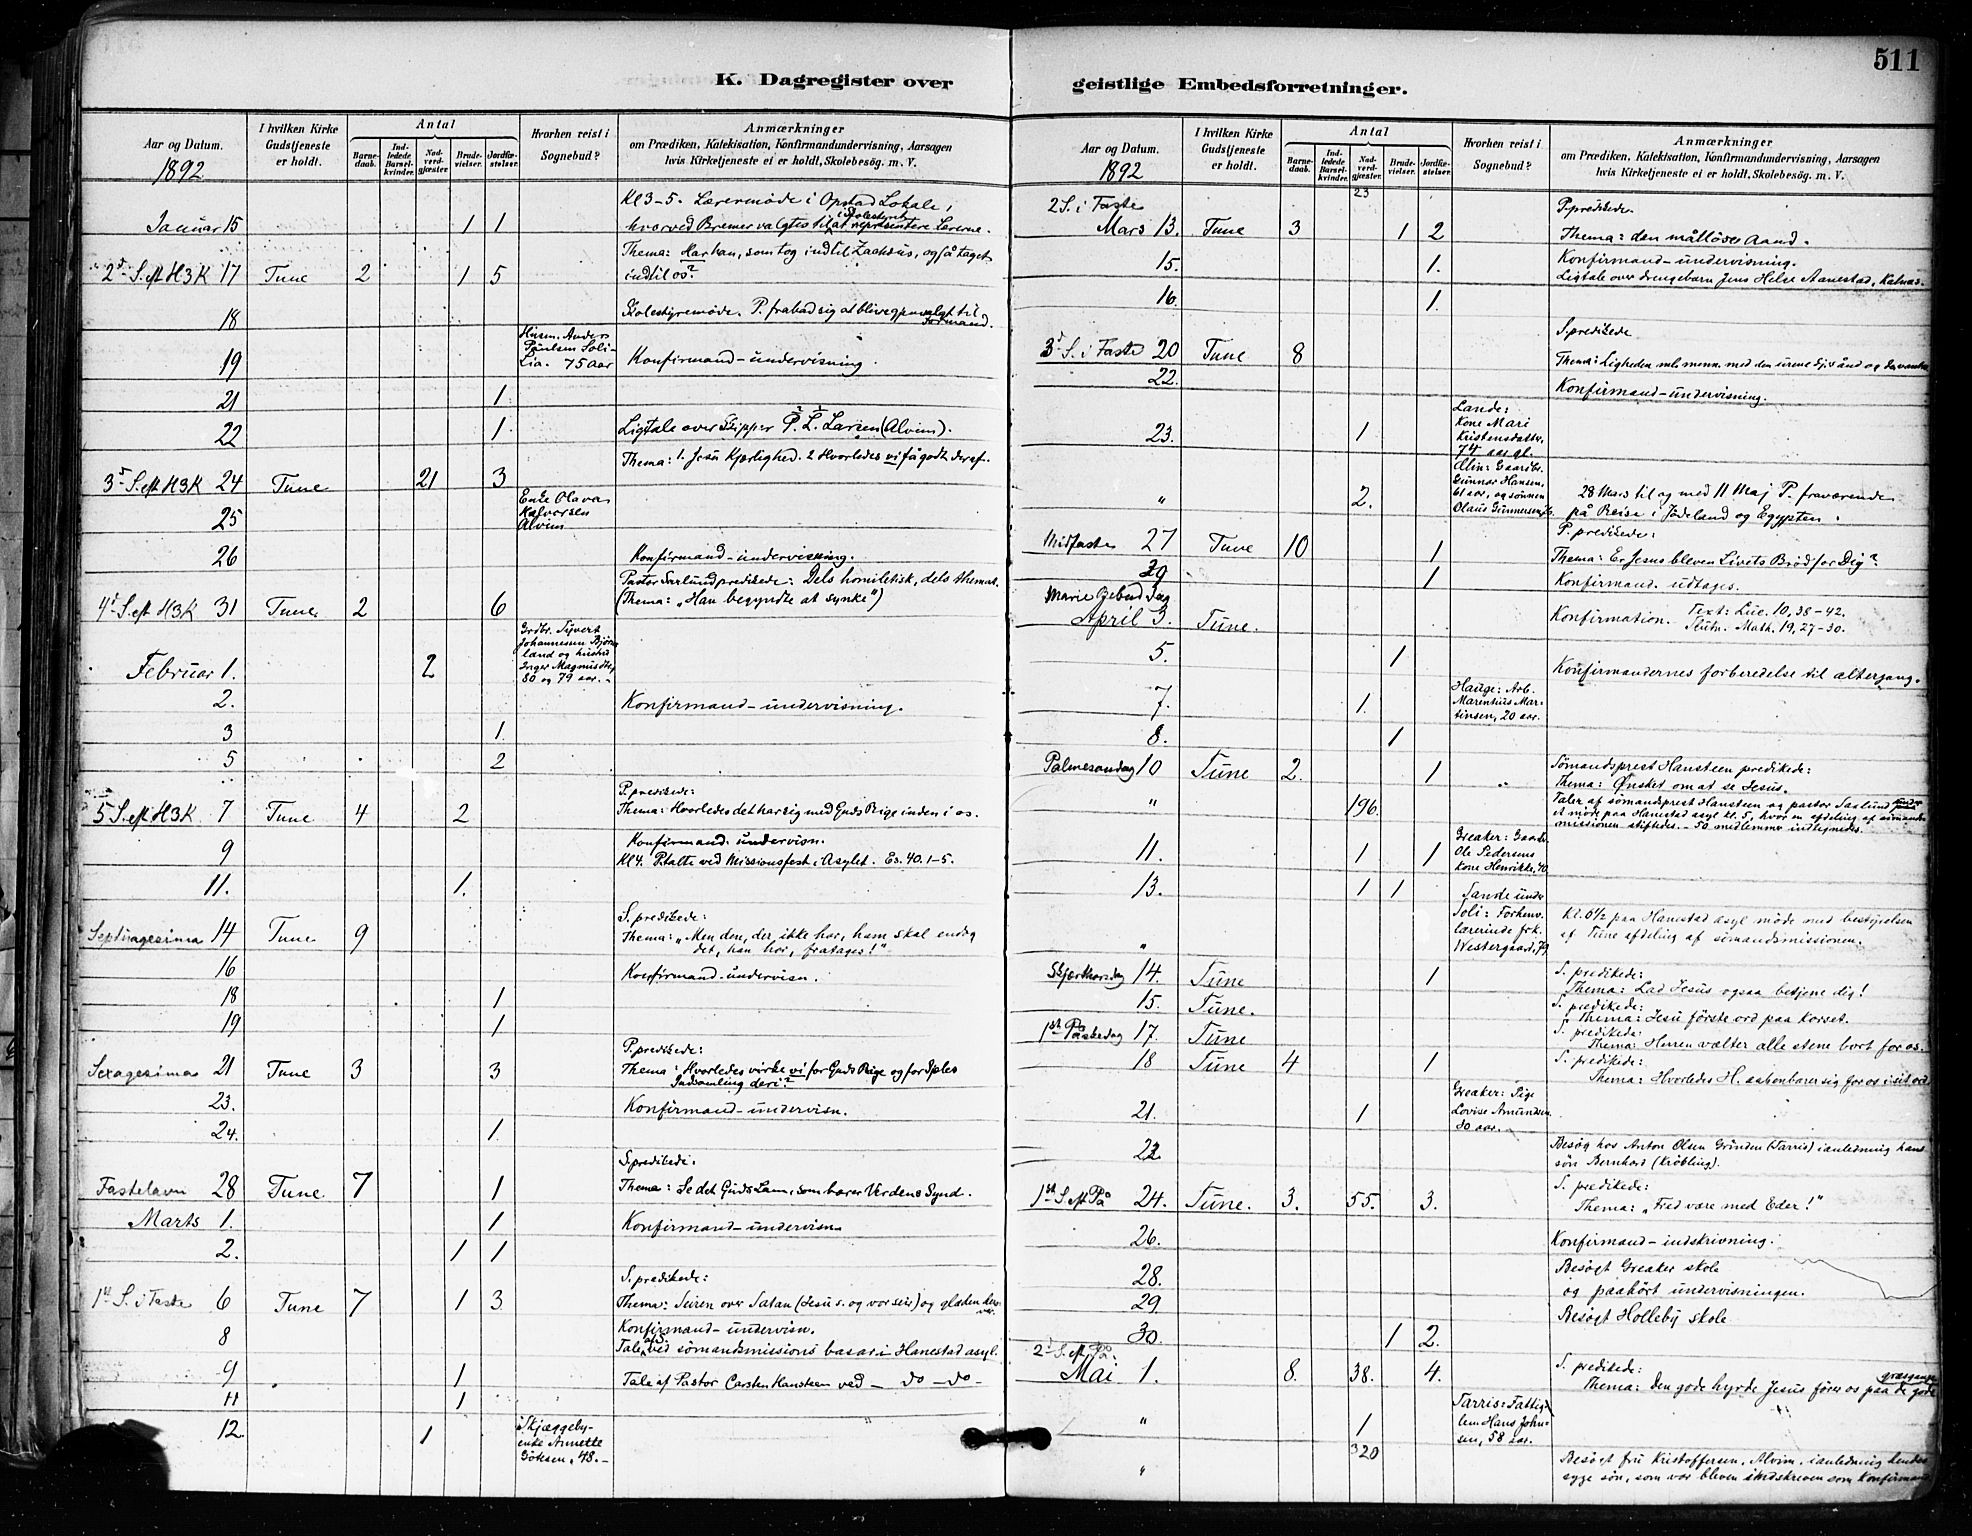 511
K. Dagregister over
geistlige Embedsforretninger.
Aar og Datum.
1892
I hvilken Kirke Gudstjeneste er holdt.
Antal
Barnedaab.
Indledede Barselkvinder.
Nadverdgjæster
Brudevielser.
Jordfæstelser.
Hvorhen reist i Sognebud?
Anmærkninger
om Prædiken, Katekisation, Konfirmandundervisning, Aarsagen
hvis Kirketjeneste ei er holdt, Skolebesøg. m. V.
Kl 3-5. Lærermøde i Opstad Lokale,
i Skolestyret
Januar 15 1 1 hvorved Bremer valgtes til at repræsentere Lærerne.
Thema: Har han, som tog ind til Zachæus, også taget
2d S. eft H3K 17 Tune 2 1 5 ind til os?
18 Skolestyremøde. P. frabad sig at blive gjenvalgt til Formand.
Husm. Anders
Paulsen Soli-
19 Lia. 75 aar Konfirmand-undervisning.
21 1.
22 1. Ligtale over Skipper P. L. Larsen (Alvim).
Thema: 1. Jesu Kjærlighed. 2 Hvorledes vi få godt deraf.
3d S. eft H3K 24 Tune 21 3
Enke Olava
25 Halvorsen
Alvim
26 Konfirmand-undervisning.
Pastor Sarlund predikede: Dels homiletisk, dels themat.
4d S. eft H3K 31 Tune 2 6 (Thema: „Han begyndte at synke")
Grdbr. Sivert
Johannesen Bjørn-
land og hustru
Februar 1. 2 Inger Magnusdtr,
80 og 79 aar.-
2. Konfirmand-undervisning.
3 1.
5 2
P. predikede:
5 S. eft H3K 7 Tune 4 2 Thema: Hvorledes det har sig med Guds Rige inden i os.
9 Konfirmand. undervisn.
Kl 4. P. talte ved Missionsfest i Asylet. Es. 40. 1-5.
11. 1.
S. predikede:
Septuagesima 14 Tune 9 Thema: „Men den, der ikke har, ham skal endog
det, han har, fratages!"
16 Konfirmand-undervisn.
18 1
19 1
P. predikede:
Sexagesima 21 Tune 3 3 Thema: Hvorledes virke vi for Guds Rige og fordples
Indsamling deri?
23. Konfirmand-undervisn.
24. 1.
S. predikede:
Fastelavn 28 Tune 7 1 Thema: Se det Guds Lam, som bærer Verdens Synd.
Marts 1. 1 Konfirmand-undervisn
2. 1 1
S. predikede:
1ste S. i Faste 6 Tune 7 1 3 Thema: Seiren over Satan (Jesu s. og vor seir) og glæden
8 Konfirmand-undervisn.
Tale af S. ved sømandsmissions basar i Hanestad asyl.
9 1 Tale af Pastor Carsten Hansteen ved - do - do -
11 1
12 1 Skjæggeby-
enke Annette
48.-
Aar og Datum.
1892
I hvilken Kirke Gudstjeneste er holdt.
Antal
Barnedaab.
Indledede Barselkvinder.
Nadverdgjæster.
Brudevielser.
Jordfæstelser.
Hvorhen reist i Sognebud?
Anmærkninger
om Prædiken, Katekisation, Konfirmandundervisning, Aarsagen
hvis Kirketjeneste ei er holdt, Skolebesøg. m. V.
23
2 S. i Faste P. predikede.
Mars 13. Tune 3 1 2 Thema: den målløse Aand.
15. 1. Konfirmand-undervisning.
Ligtale over drengebarn Jens Helse Aanestad, Kalnæs.
16. 1.
S. predikede
3d S. i Faste 20 Tune 8 Thema: Ligheden mlm menn. med den urene Ånd og
22. Konfirmand-undervisning.
Lande:
Kone Mari
23. 1 Kristensdatter,
74 aar gl.
Alvim: Gaardbr.
Gunnar Hansen,
„ 2. 61 aar, og sønnen
Olaus Gunnersen
28 Mars til og med 11 Maj P. fraværende
på Reise i Jødeland og Egypten.
P. predikede:
Midfaste 27 Tune 10 1 Thema: Er Jesus bleven Livets Brød for Dig?
29 1 Konfirmand. udtages.
Marie Gebud Dag
April 3. Tune. Konfirmation. Text: Luc. 10, 38-42.
Slutn. Math. 19, 27-30.
5. 1
Konfirmandernes forberedelse til altergang.
Hauge: Arb.
7. 1. Marentius Mar-
tinsen, 20 aar.
8. 1
Palmesøndag 10 Tune 2. 1 Sømandsprest Hansteen predikede:
Thema: Ønsket om at se Jesus.
„ 196. Taler af sømandsprest Hansteen og pastor Saxlund under
et møde paa Hanestad asyl kl. 5, hvor en afdeling af sømands-
missionen stiftedes. - 50 medlemmer indtegnedes.
Greaker: Gaardbr.
11. 1 1 Ole Pedersens
kone Henrikke, 40.
13. 1 1 Sande under
Soli: Forhenv.
lærerinde frk.
„ Westergaard, 79
Kl. 6½ paa Hanestad asyl møde med bestyrelsen
af Tune afdeling af sømandsmissionen.
Skjærthorsdag 14. Tune 1 S. predikede:
Thema: Lad Jesus ogsaa betjene dig!
15. Tune. S. predikede:
Thema: Jesu første ord paa korset.
1ste Paaskedag 17. Tune S. predikede:
Thema: Herren vælter alle stene bort for os.
18 Tune 4 1 S. predikede:
Thema: Hvorledes H. aabenbarer sig for os i sit ord
Greaker: Pige
21. 1 Lovise Amundsen.
30 aar.
22 Besøg hos Anton Olsen Grunden (Tarris) i anledning hans
søn Bernhard (krøbling).
1ste S. eft På 24. Tune. 3. 55. 3. S. predikede:
Thema: „Fred være med Eder!"
26. Konfirmand-indskrivning.
28. Besøgt Greaker skole
og paahørt undervisningen.
29 Besøgt Holleby skole
30. 1 2.
2d S. eft. På.
Mai 1. 8. 38. 4. S. predikede:
Thema: Den gode hyrde Jesus fører os paa de gode græsgange
Tarris: Fattig-
„ 1 lem Hans John-
sen, 58 aar.
320
„ Besøgt fru Kristoffersen, Alvim, i anledning hendes
syge søn, som var bleven indskreven som konfirmand